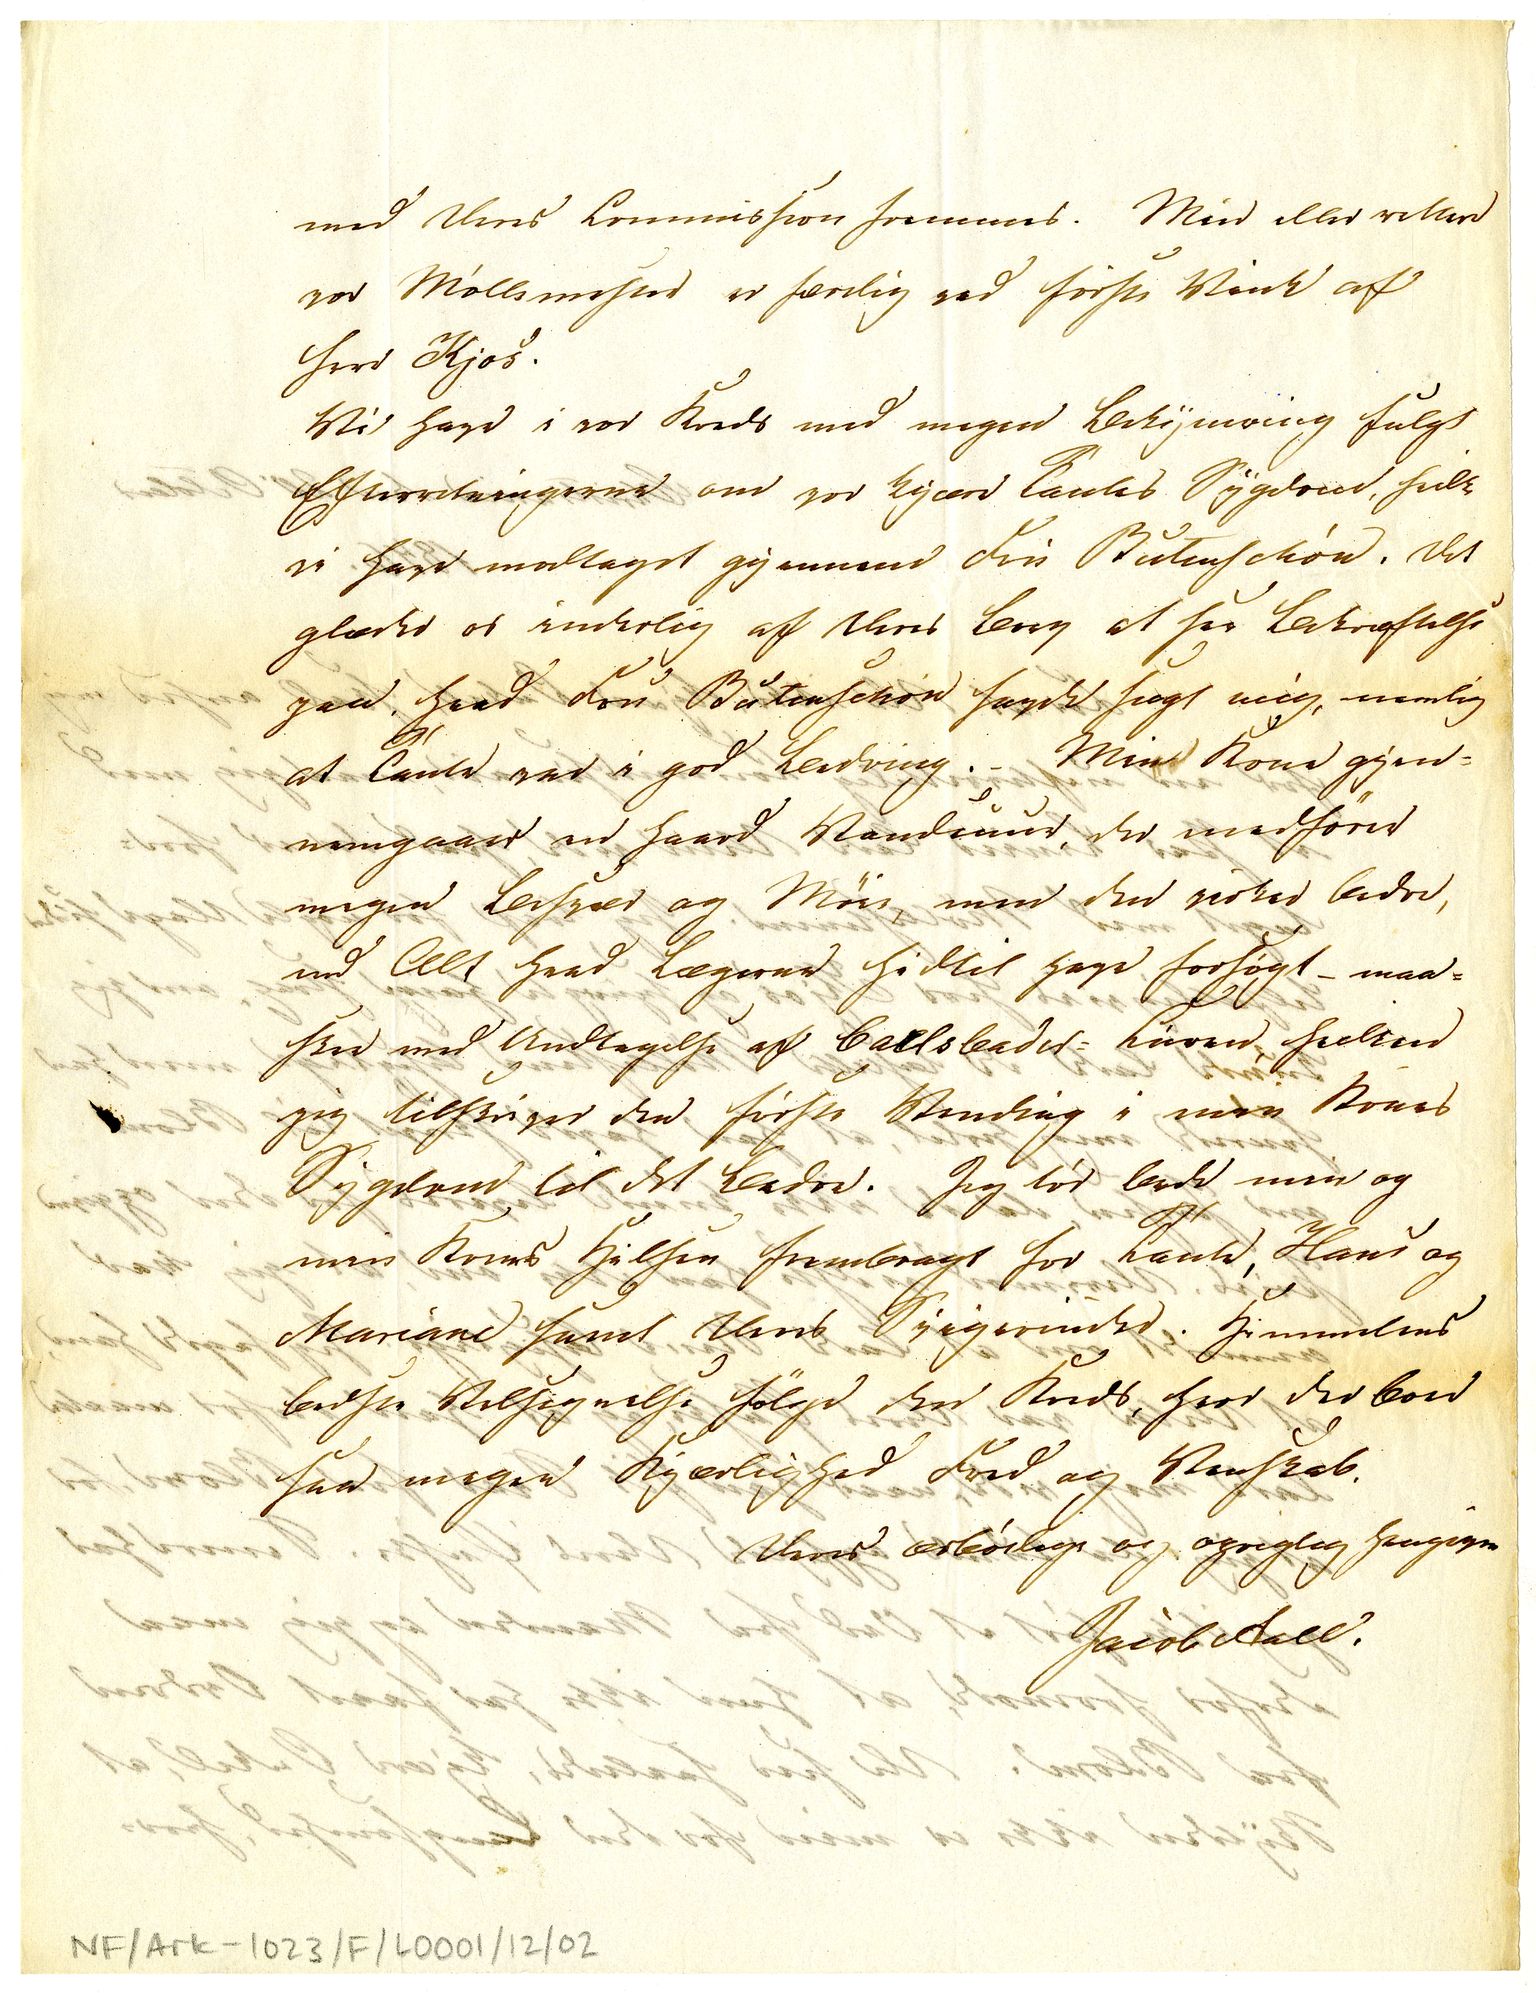 med Deres Commission fremmes. Min eller rettere
vor Möllemester er færdig ved første Vink af
Herr Kjos.
Vi have i vor Kreds med megen Bekymring fulgt
Efterretningerne om vor kjære Tantes Sygdom, hvilke
vi have modtaget gjennem Fru Butenschön. Det
glæder os inderlig af Deres Brev at see Bekræftelse
paa, hvad Fru Bütenschön havde sagt mig, nemlig
at Tante var i god Bedring. – Min Kone gjen=
nemgaaer en haard Vandkuur, der medfører
megen Besvær og Möie, men den virker bedre,
end Alt hvad Lægerne hidtil have forsøgt – maa=
skee med Undtagelse af Carlsbader= Curen, hvilken
jeg tilskriver den første Vending i min Kones
Sygdom til det bedre. Jeg tör bede min og
min Kones Hilsen frembragt for Tante, Hans og
Mariane samt Deres Svigerinder. Himmelens
bedste Velsignelse følge den Kreds, hvor der boer
saa megen Kjærlighed Fred og Venskab.
Deres ærbødige og oprigtig hengivne
Jacob Aall.
NF/Ark-1023/F/L0001/12/02